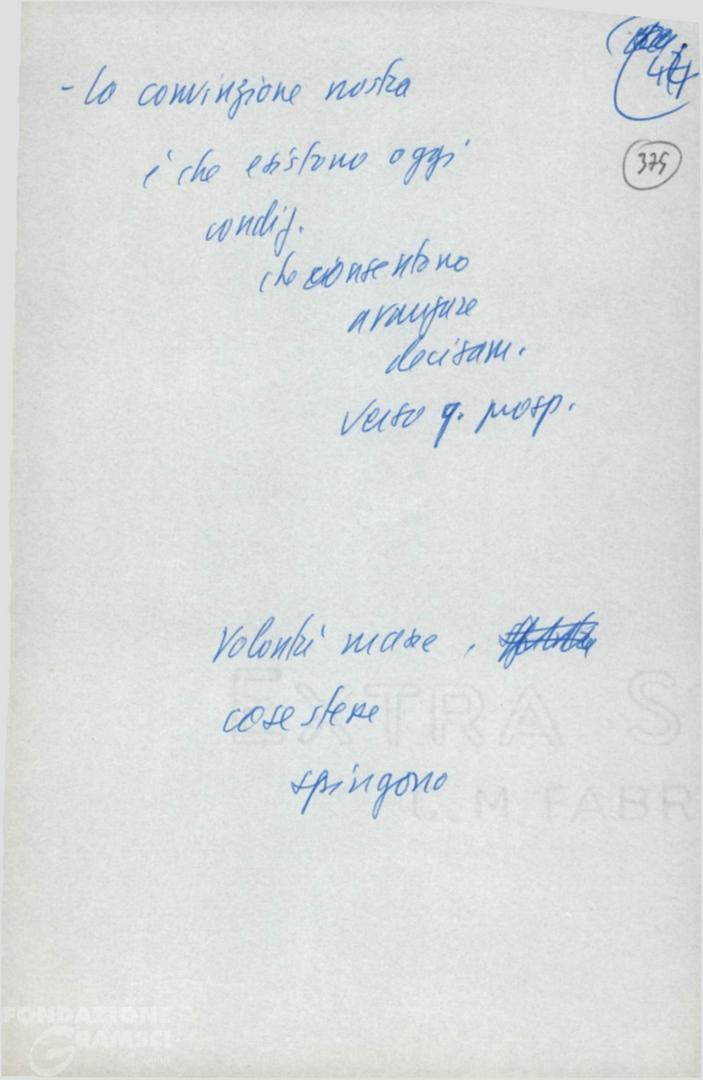 44
375
- La convinzione nostra
è che esistono oggi
condiz.
che consentono
avanzare
decisam.
verso q. prosp.
Volontà masse,
cose stesse
spingono
EXTRA S
C.M. FABR
FONDAZIONE
GRAMSCI